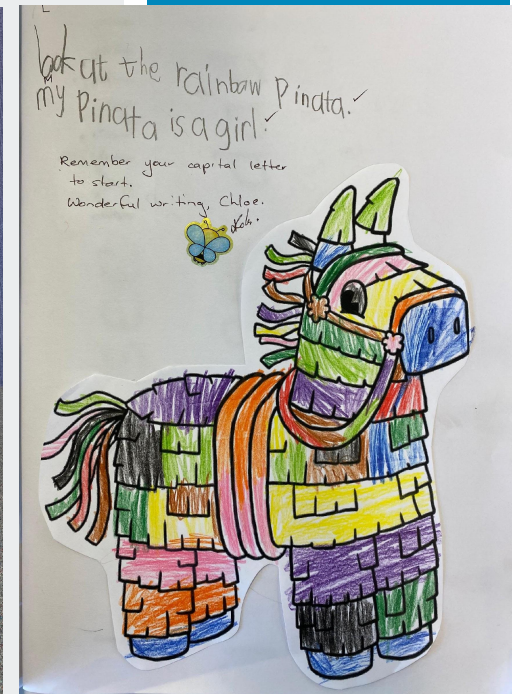 Look at the rainbow Pinata.
my Pinata is a girl.
Remember your capital letter
to start.
Wonderful writing, Chloe.